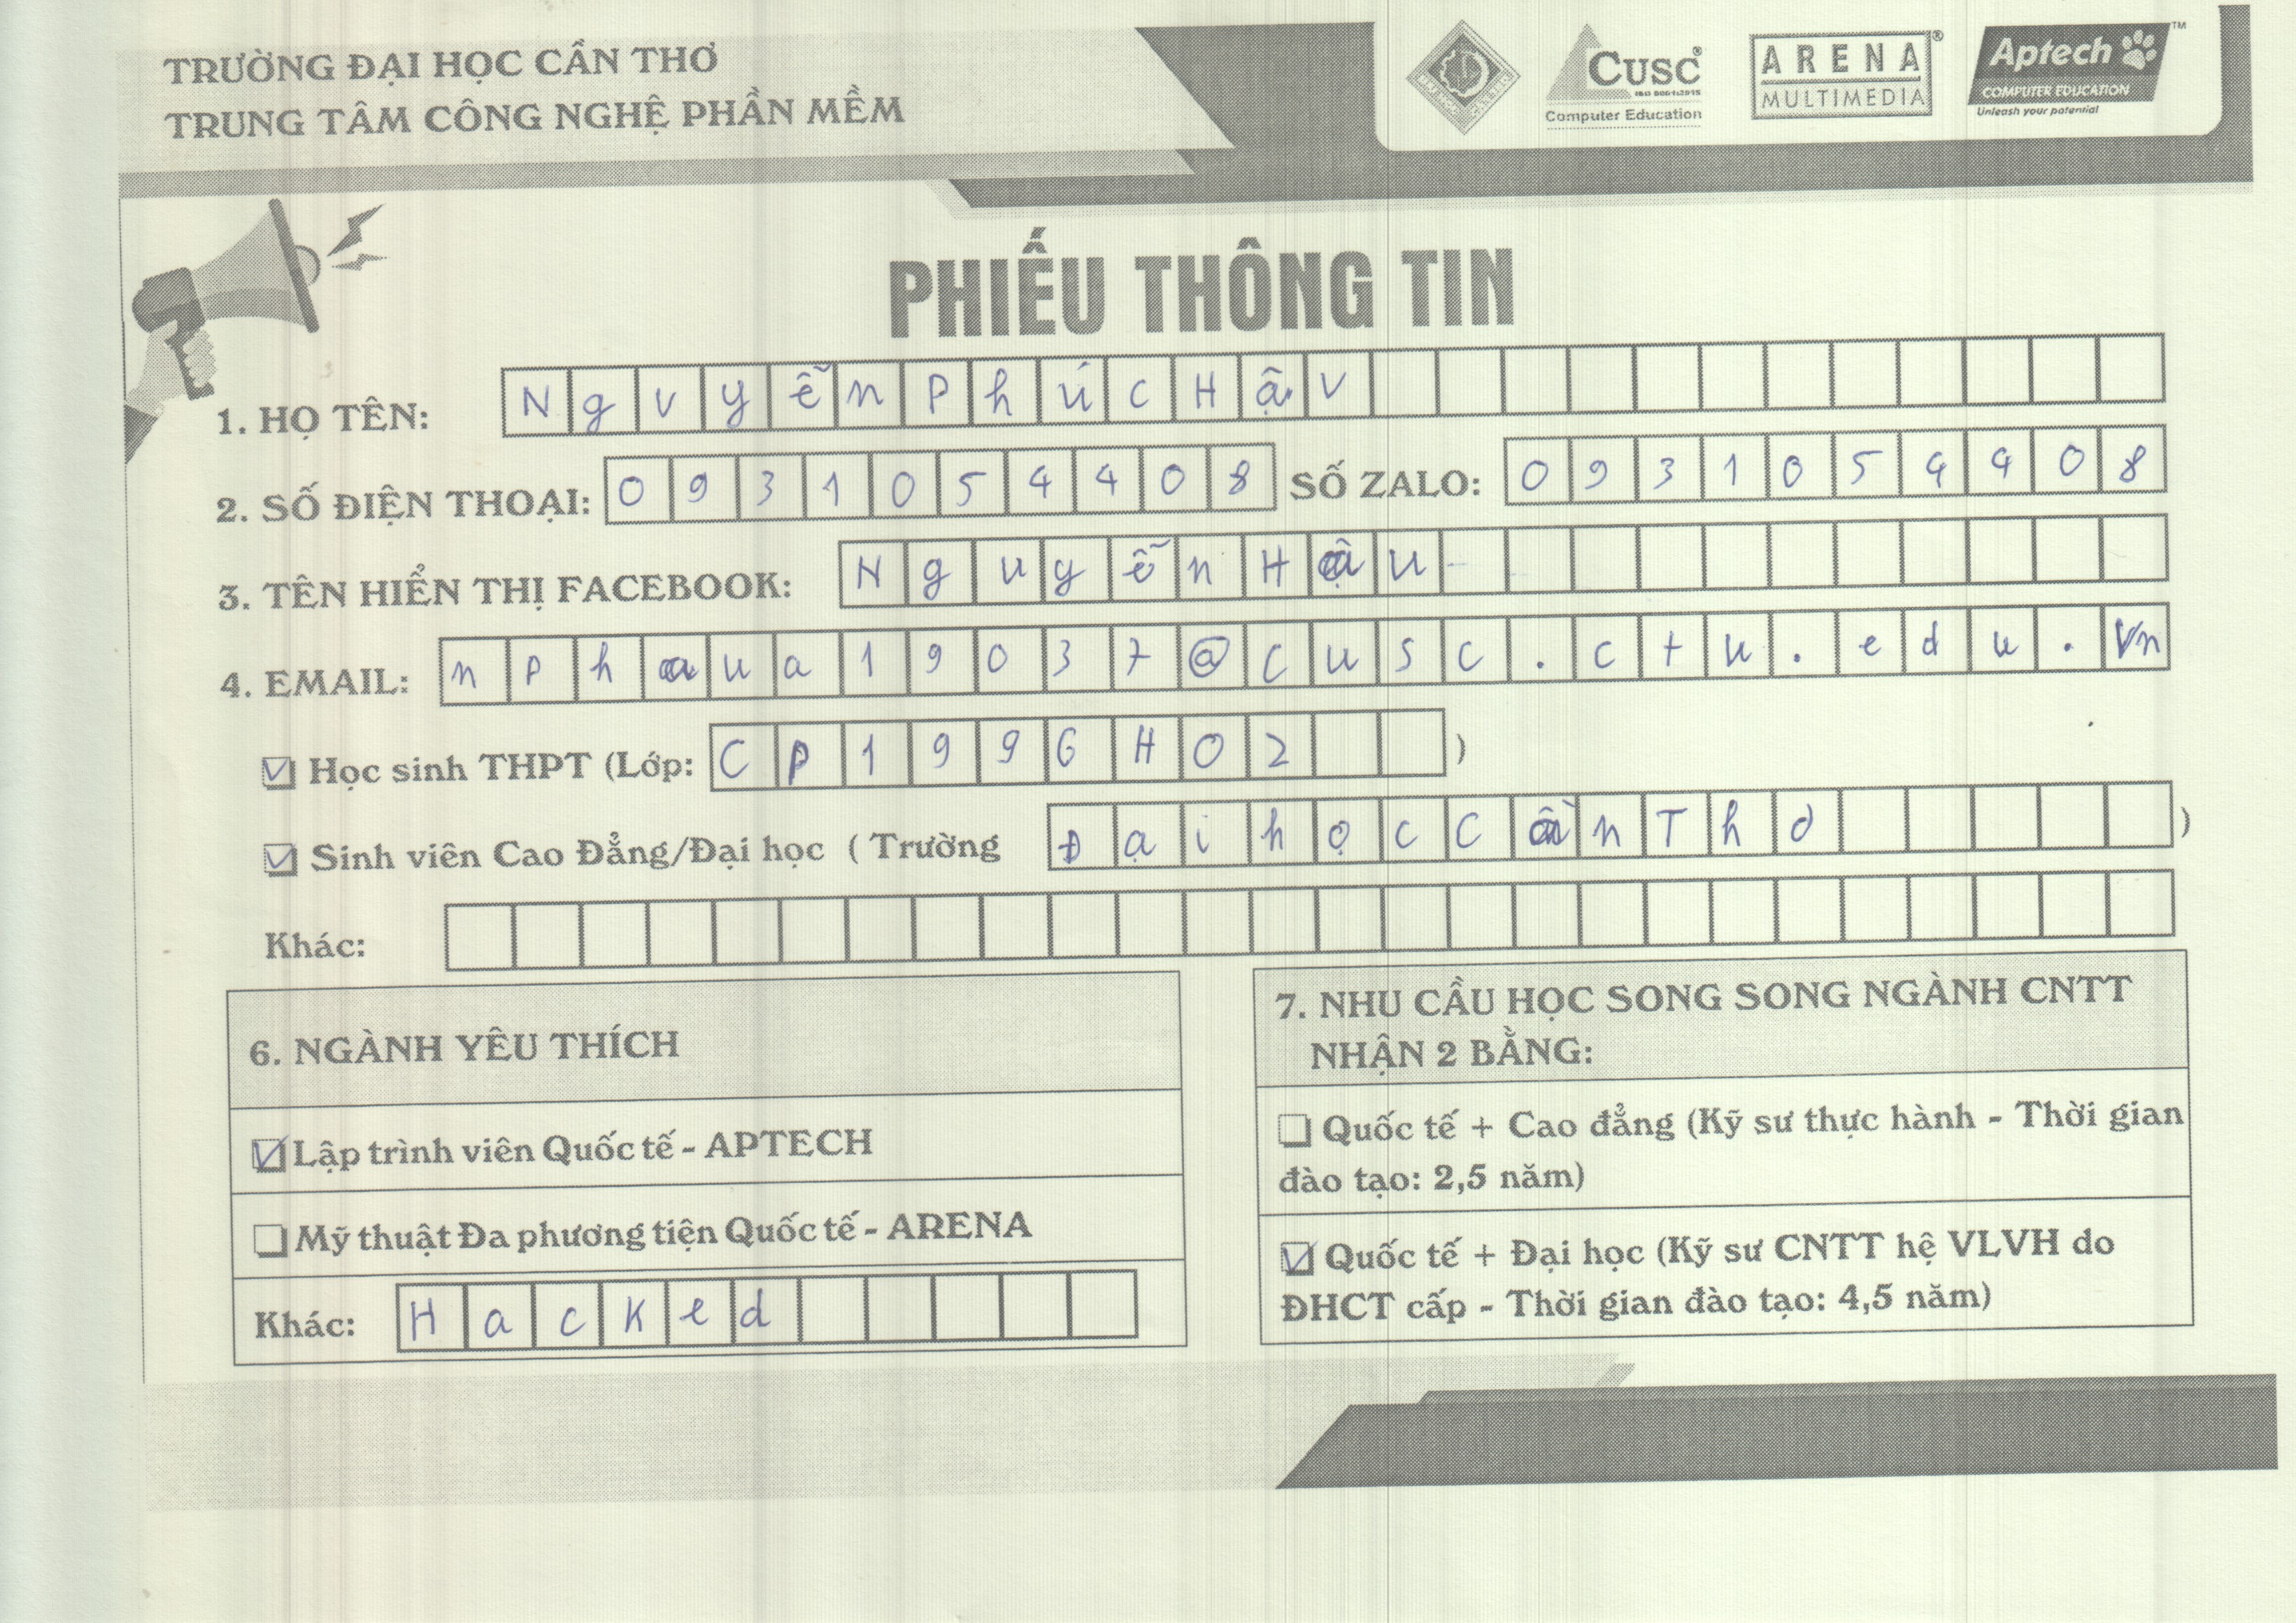 TRƯỜNG ĐẠI HỌC CẦN THƠ
TRUNG TÂM CÔNG NGHỆ PHẦN MỀM
CUSC®
ISO 9001:2015
Computer Education
ARENA®
MULTIMEDIA
Aptech™
COMPUTER EDUCATION
Unleash your potential
PHIẾU THÔNG TIN
1. HỌ TÊN: NgvyễnPhúcHậV
2. SỐ ĐIỆN THOẠI: 0931054408 SỐ ZALO: 0931054408
3. TÊN HIỂN THỊ FACEBOOK: NguyễnHậu
4. EMAIL: nphaua19037@cusc.ctu.edu.Vn
☑ Học sinh THPT (Lớp: CP1996H02 )
☑ Sinh viên Cao Đẳng/Đại học ( Trường ĐạihọcCầnThơ )
Khác:
6. NGÀNH YÊU THÍCH
☑ Lập trình viên Quốc tế - APTECH
☐ Mỹ thuật Đa phương tiện Quốc tế - ARENA
Khác: Hacked
7. NHU CẦU HỌC SONG SONG NGÀNH CNTT
NHẬN 2 BẰNG:
☐ Quốc tế + Cao đẳng (Kỹ sư thực hành - Thời gian
đào tạo: 2,5 năm)
☑ Quốc tế + Đại học (Kỹ sư CNTT hệ VLVH do
ĐHCT cấp - Thời gian đào tạo: 4,5 năm)